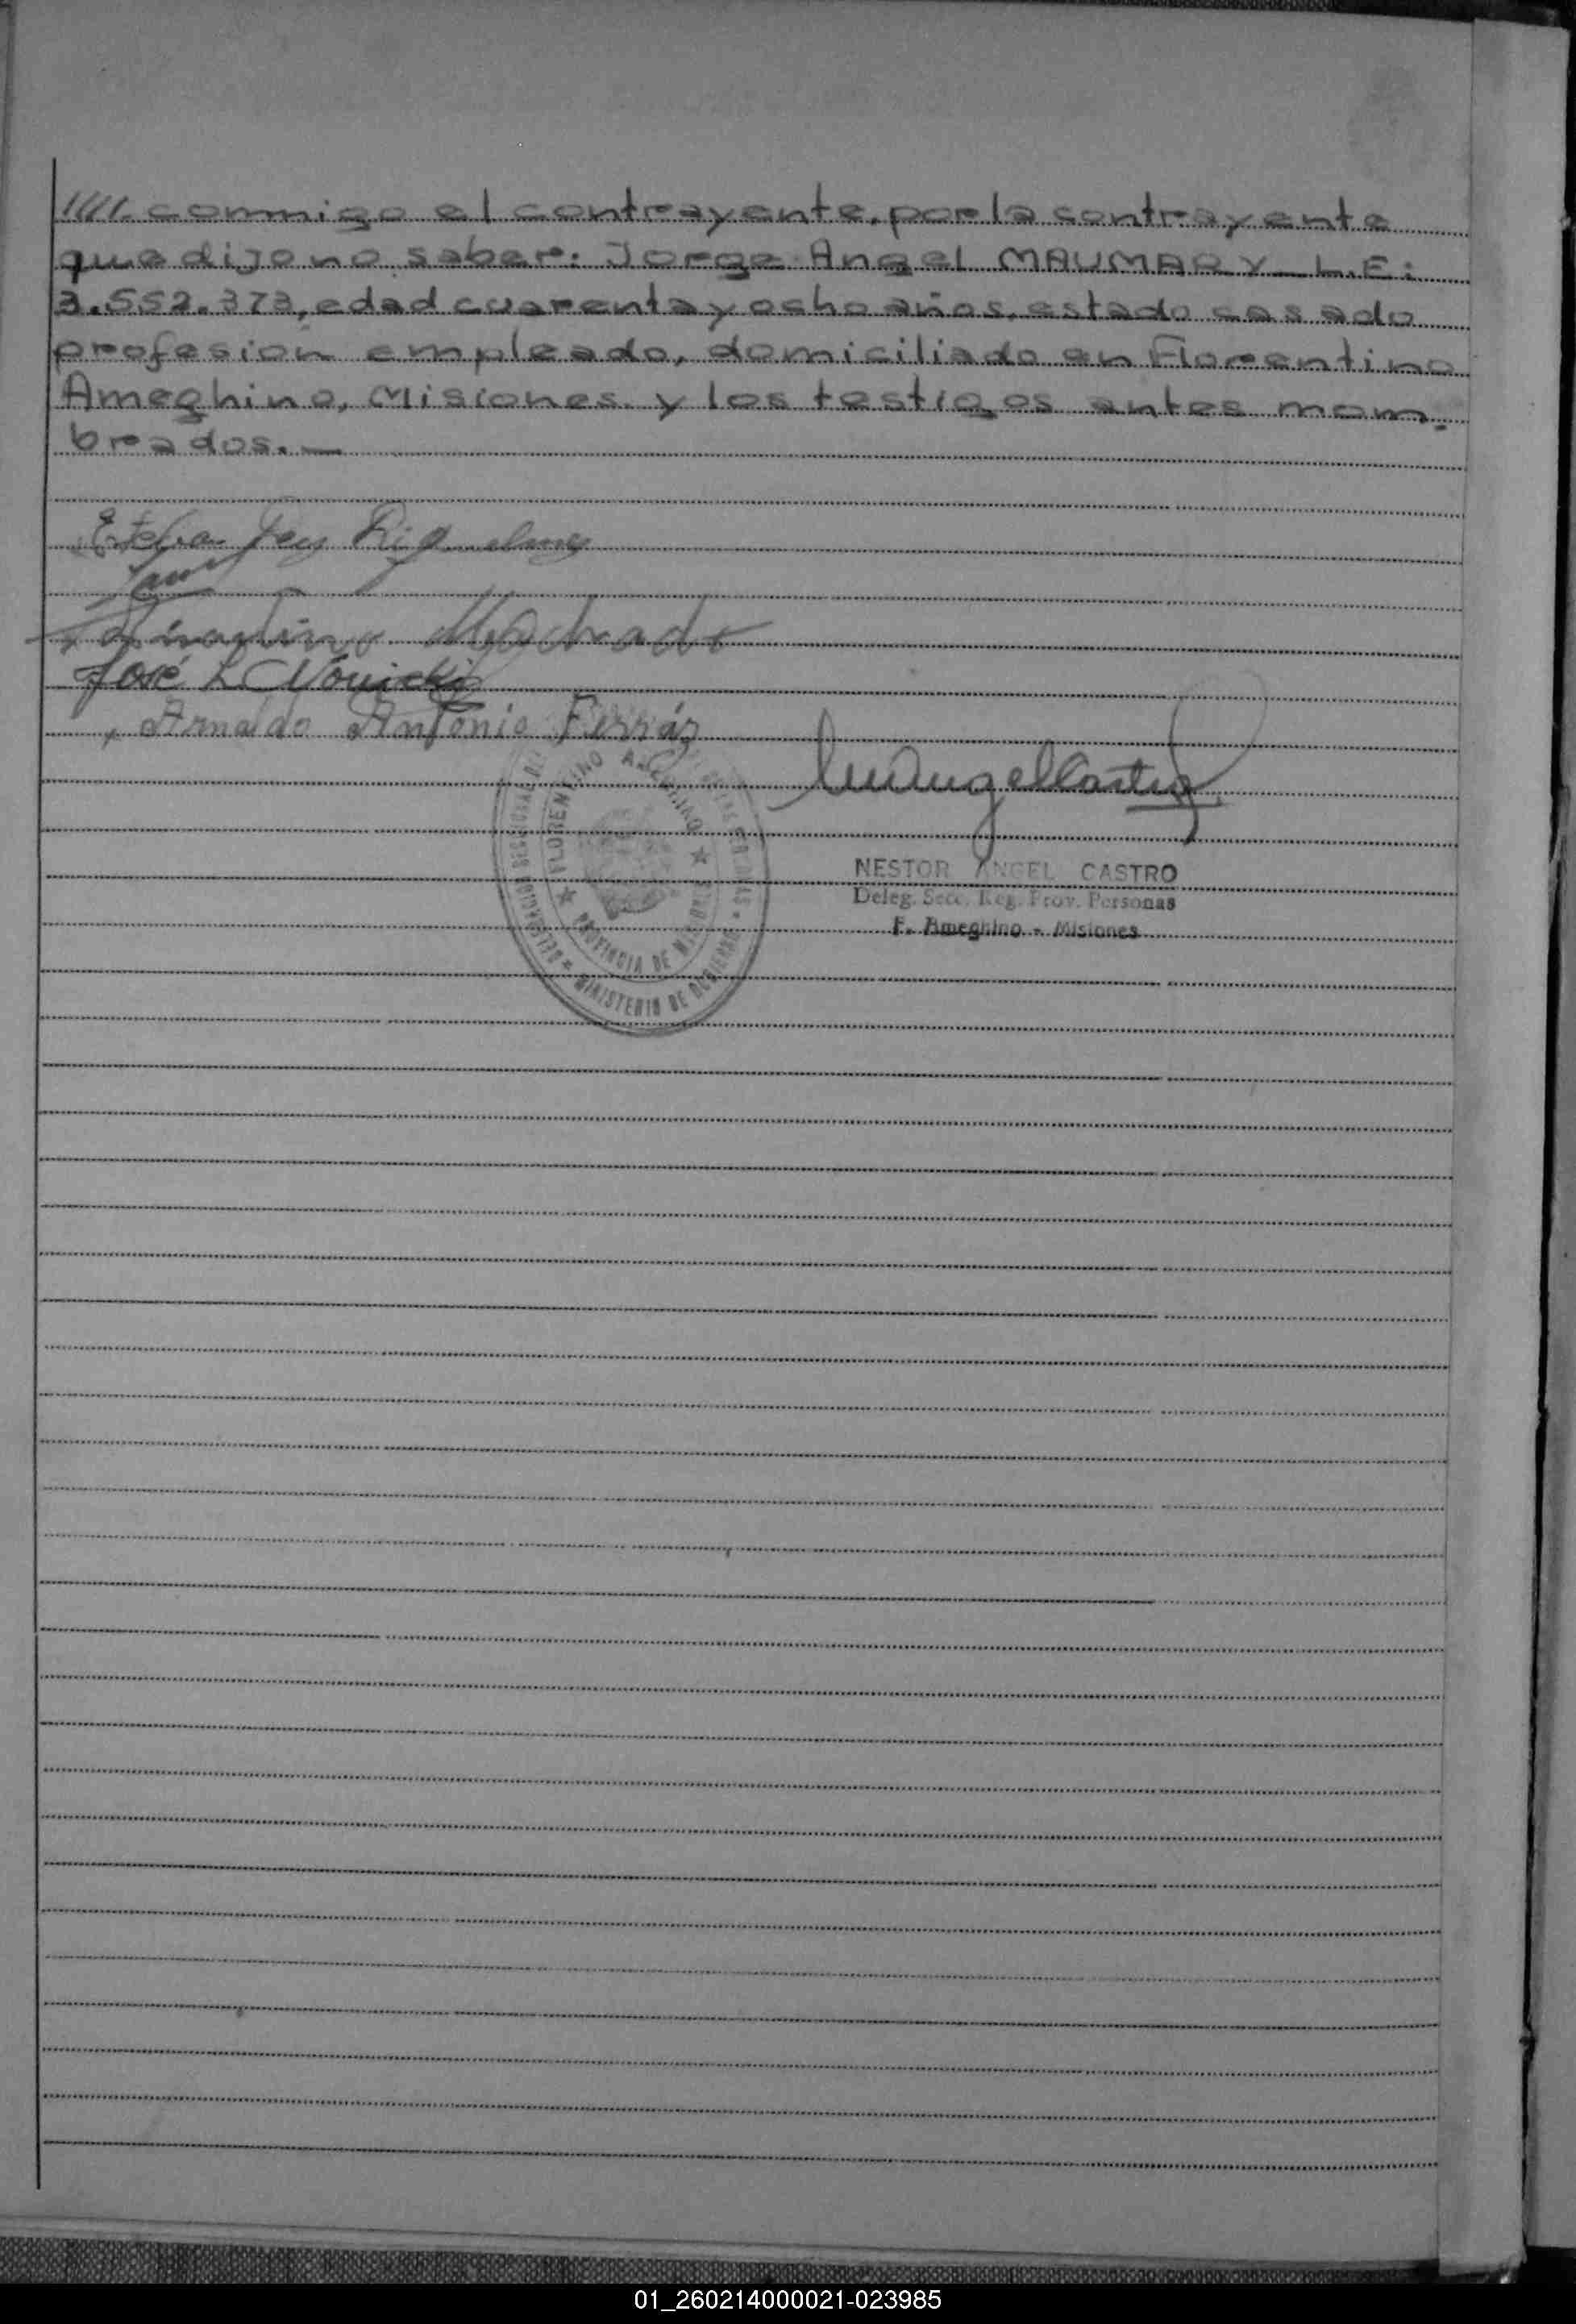 //// conmigo el contrayente, por la contrayente
que dijo no saber: Jorge Angel MAUMARY L.E:
3.552.373, edad cuarenta y ocho años, estado casado
profesion empleado, domiciliado en Florentino
Ameghino, Misiones y los testigos antes mom-
brados.—
José L Novicki
Machado
Arnaldo Antonio Ferráz
FLORENTINO AMEGHINO
PROVINCIA DE MISIONES
MINISTERIO DE GOBIERNO
NESTOR ANGEL CASTRO
Deleg. Secc. Reg. Prov. Personas
F. Ameghino - Misiones
01_260214000021-023985